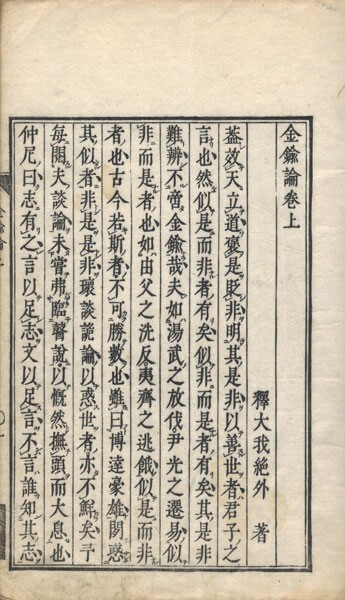 金鍮論卷上
釋大我絶外 著
蓋效天立道褒是貶非明其是非以善世者君子之
言也然似是而非者有矣似非而是者有矣其是非
難辨不啻金鍮哉夫如湯武之放伐尹光之遷易似
非而是者也如由父之洗反夷齊之逃餓似是而非
者也古今若斯者不可勝數也雖曰博達豪雄罔惑
其似者非是是非瓌談詭論以惑世者亦不鮮矣予
每閱夫談論未嘗弗臨聲訟以慨然撫頭而大息也
仲尼曰志有之言以足志文以足言不言誰知其志